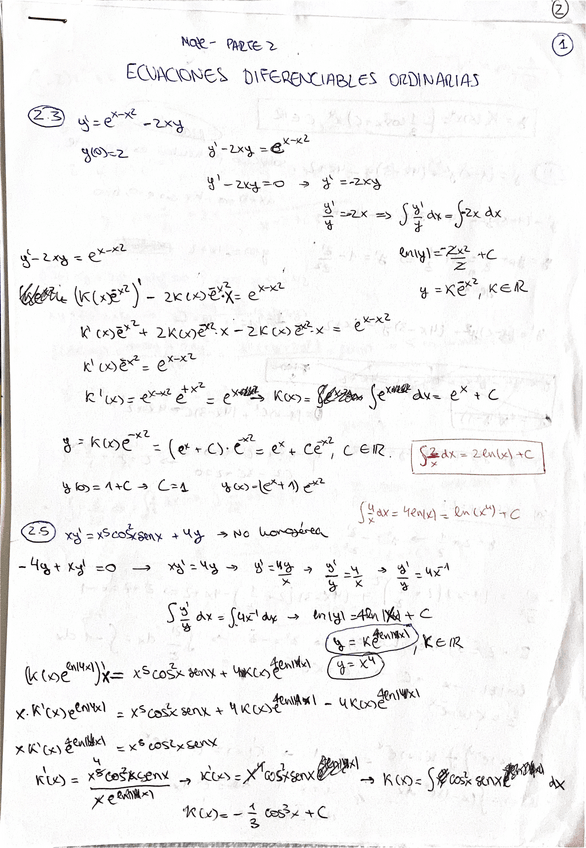 2
1
PARTE 2
ECUACIONES DIFERENCIABLES ORDINARIAS
2.3 y' = e^{x-x^2} - 2xy
y(0)=2 y' - 2xy = e^{x-x^2}
y' - 2xy = 0 → y' = -2xy
y'/y = -2x => ∫ y'/y dx = ∫ -2x dx
y' - 2xy = e^{x-x^2} ln|y| = -2x^2/2 + C
(K(x)e^{-x^2})' - 2K(x)e^{-x^2}·x = e^{x-x^2} y = Ke^{-x^2}, K∈ℝ
K'(x)e^{-x^2} + 2K(x)e^{-x^2}·x - 2K(x)e^{-x^2}·x e^{x-x^2}
K'(x)e^{-x^2} = e^{x-x^2}
K'(x) = e^{x-x^2} e^{+x^2} = e^x → K(x) = ∫ e^x dx = e^x + C
y = K(x)e^{-x^2} = (e^x + C)·e^{-x^2} = e^x + Ce^{-x^2}, C∈ℝ.
∫ 2/x dx = 2ln(x) + C
y(0) = 1+C → C=1 y(x) - (e^x+1) e^{-x^2}
∫ 4/x dx = 4ln|x| = ln(x^4) + C
2.5 xy' = x^5cos^2x senx + 4y → No homogénea
-4y + xy' = 0 → xy' = 4y → y' = 4y/x → y'/y = 4/x → y'/y = 4x^{-1}
∫ y'/y dx = ∫ 4x^{-1} dx → ln|y| = 4ln|x| + C
y = Ke^{4ln|x|}, K∈ℝ
y = x^4
(K(x)e^{ln|4x|})'x = x^5cos^2x senx + 4K(x)e^{4ln|x|}
x·K'(x)e^{ln|4x|} = x^5cos^2x senx + 4K(x)e^{4ln|x|} - 4K(x)e^{4ln|x|}
xK'(x)e^{4ln|x|} = x^5cos^2x senx
K'(x) = x^5cos^2x senx / x e^{4ln|x|} → K'(x) = x^4cos^2x senx → K(x) = ∫ cos^2x senx dx
K(x) = -1/3 cos^3x + C